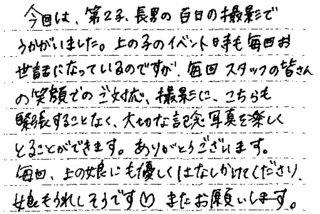 今回は、第2子、長男の百日の撮影で
うかがいました。上の子のイベント時も毎回お
世話になっているのですが、毎回スタッフの皆さん
の笑顔でのご対応、撮影に、こちらも
緊張することなく、大切な記念写真を楽しく
とることができます。ありがとうございます。
毎回、上の娘にも優しくはなしかけてくださり、
娘もうれしそうです♡ またお願いします。